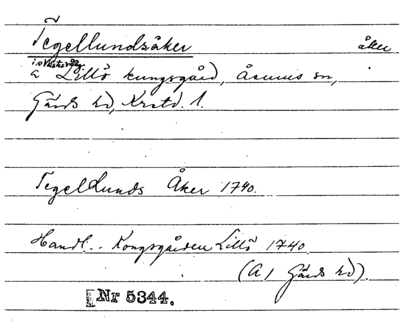 Tegellundsåker åker
å Lillö kungsgård, Åsums sn,
Gärds hd, Krstd. l.
Tegel Lunds Åker 1740.
Handl. Kongsgården Lillö 1740
(A1 Gärds hd).
Nr 5344.